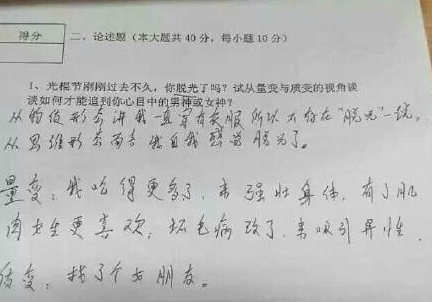 得分
二、论述题（本大题共 40 分，每小题 10 分）
1、光棍节刚刚过去不久，你脱光了吗？试从量变与质变的视角谈
谈如何才能追到你心目中的男神或女神？
从物质形态讲我一直穿有衣服所以不存在“脱光”一说。
从思维形态而言我自我感觉脱光了。
量变：我吃得更多了，来强壮身体，有了肌
肉女生更喜欢，坏毛病改了，来吸引异性．
质变：找了个女朋友。